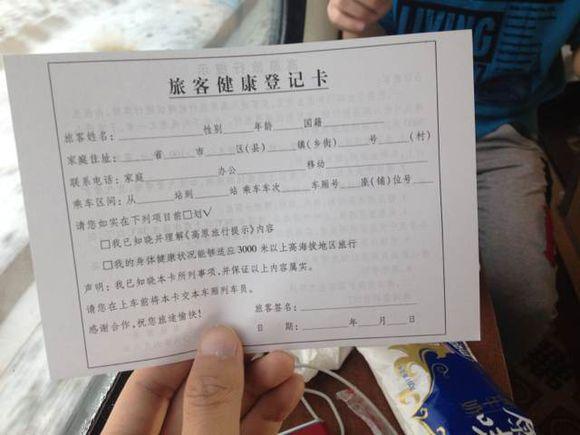 旅客健康登记卡
旅客姓名：________性别____年龄____国籍________
家庭住址：____省____市____区(县)____镇(乡街)____号____(村)
联系电话：家庭________办公________移动________
乘车区间：从____站到____站 乘车车次____车厢号____座(铺)位号____
请您如实在下列项目前□划√
□我已知晓并理解《高原旅行提示》内容
□我的身体健康状况能够适应3000米以上高海拔地区旅行
声明：我已知晓本卡所列事项，并保证以上内容属实。
请您在上车前将本卡交本车厢列车员。
感谢合作，祝您旅途愉快！
旅客签名：________
日 期：____年____月____日
LIVING